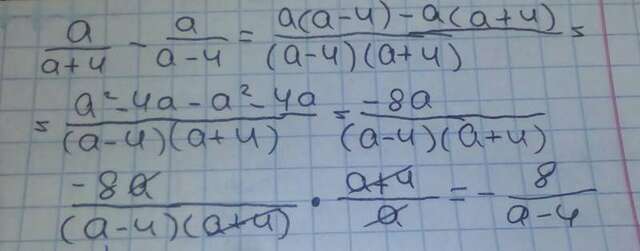 a/(a+4) - a/(a-4) = (a(a-4)-a(a+4))/((a-4)(a+4)) =
= (a²-4a-a²-4a)/((a-4)(a+4)) = -8a/((a-4)(a+4))
-8a/((a-4)(a+4)) · (a+4)/a = - 8/(a-4)